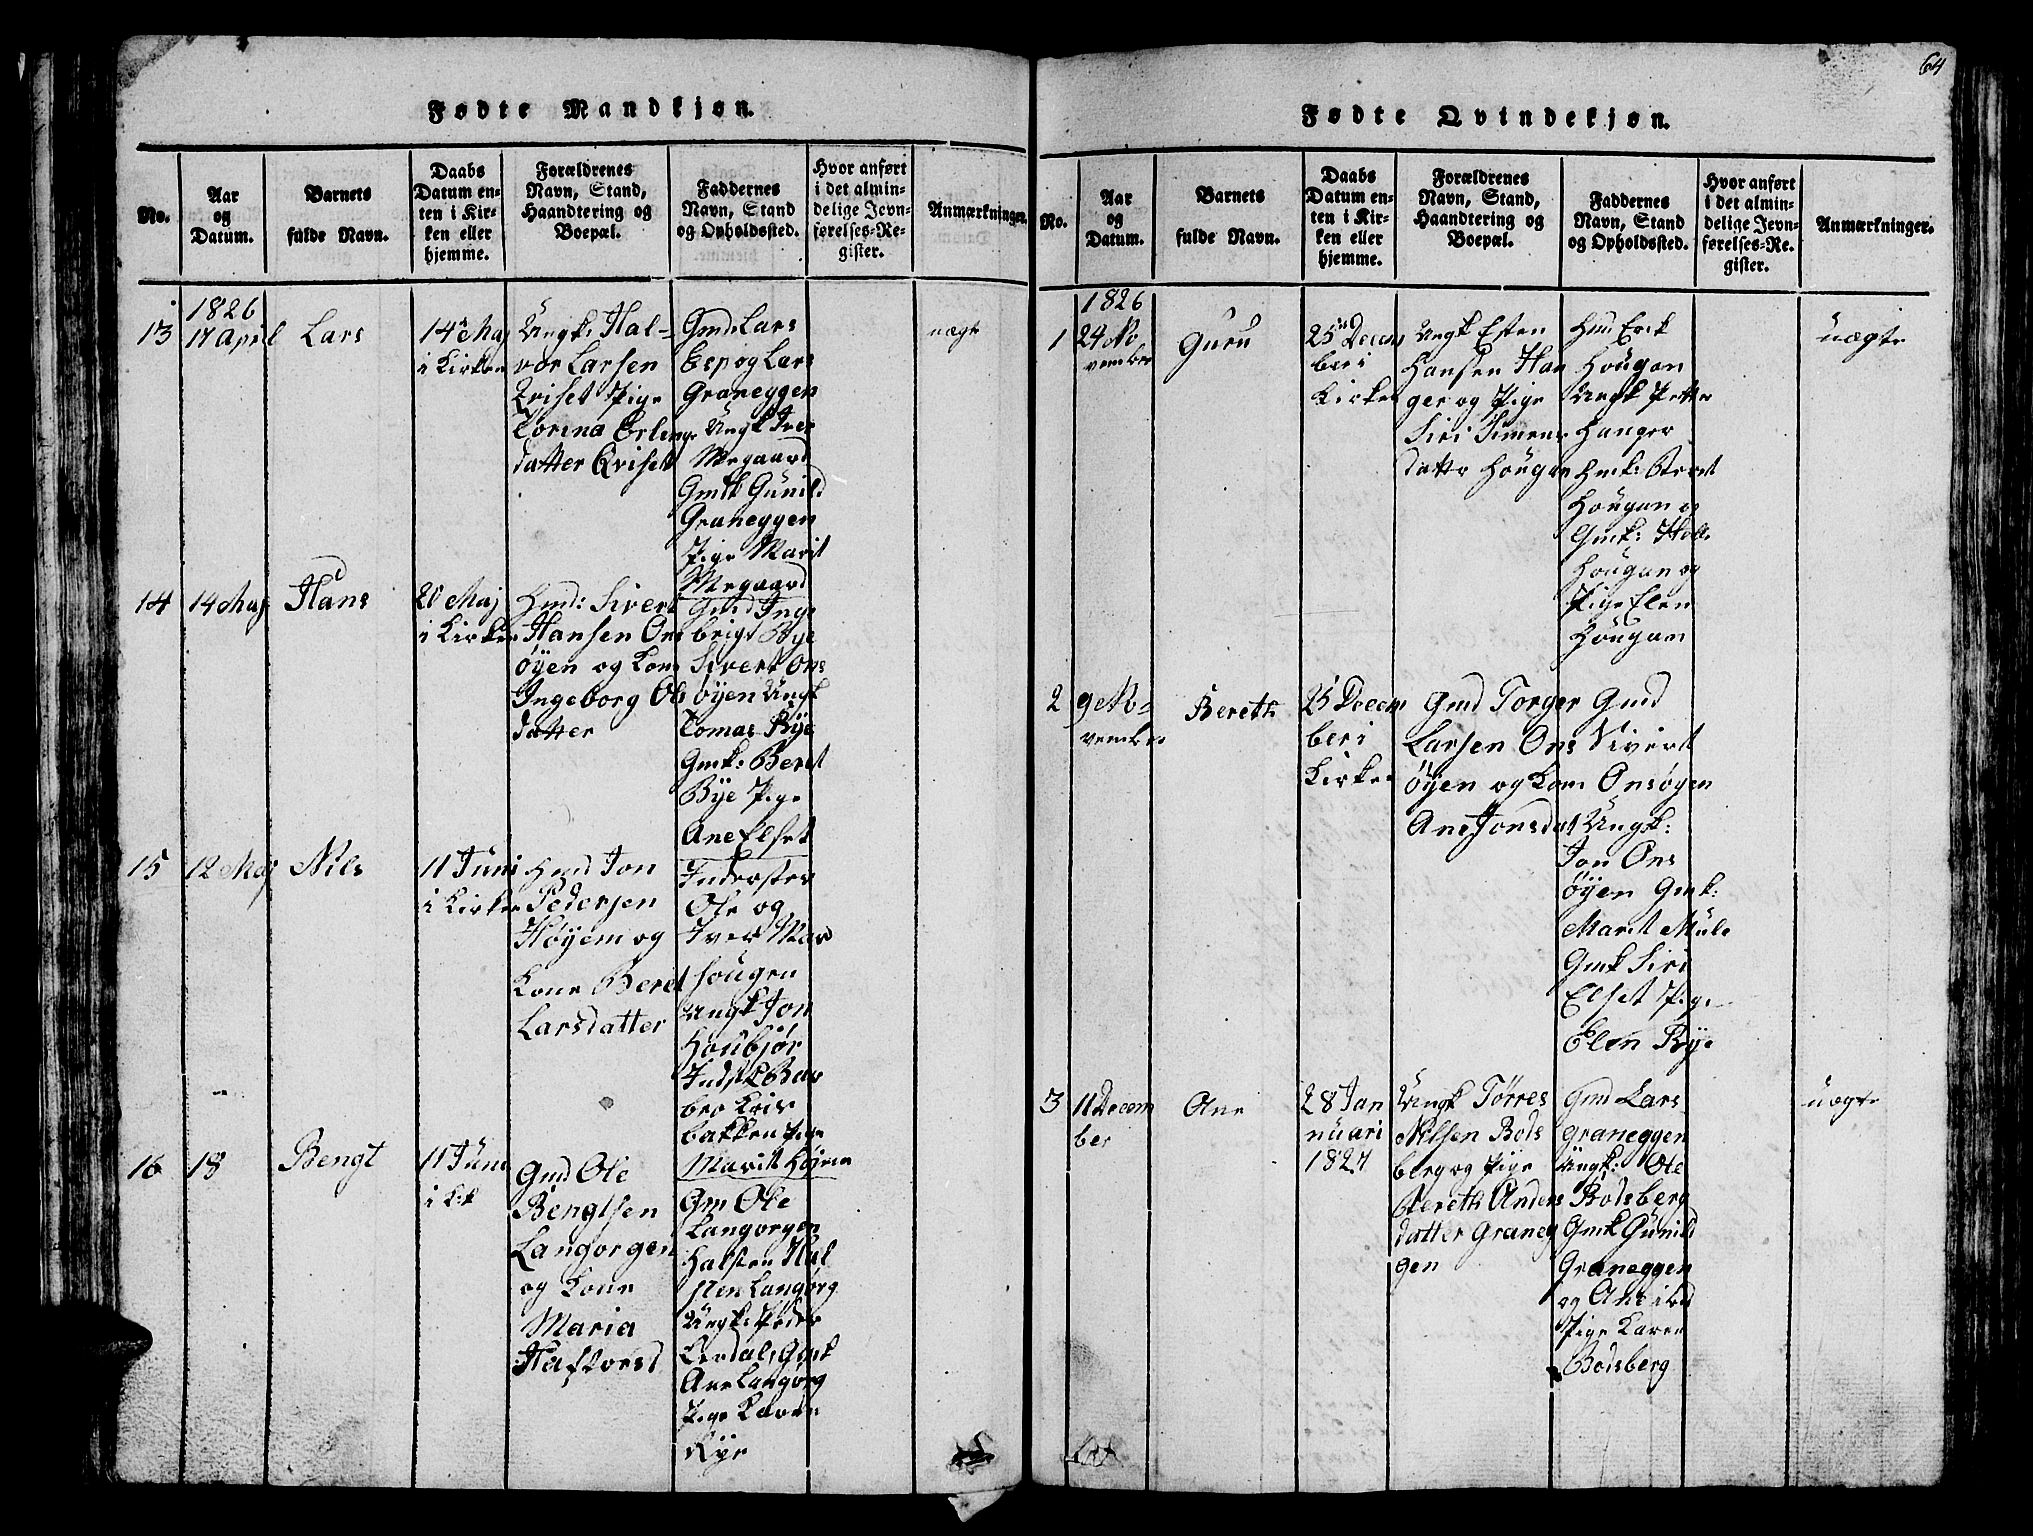 64
Fødte Mandkjøn.
No.
Aar
og
Datum.
Barnets
fulde Navn.
Daabs
Datum en-
ten i Kir-
ken eller
hjemme.
Forældrenes
Navn, Stand,
Haandtering og
Boepæl.
Faddernes
Navn, Stand
og Opholdssted.
Hvor anført
i det almin-
delige Jevn-
førelses-Re-
gister.
Anmærkninger.
1826
13
17 April
Lars
14de Maj
i Kirken
Ungk: Hal-
vor Larsen
Qviset Pige
Torina Erlings
datter Qviset
Gmd Lars
Esp og Lars
Graneggen
Ungk Iver
Megaard
Gmdk Gunild
Graneggen
Pige Marit
Megaard
uægte
14
14 Maj
Hans
21 Maj
i Kirken
Hmd: Sivert
Hansen Ons
øyen og Kone
Ingeborg Ols
datter
Gmd Inge
brigt Bye
Sivert Ons
øyen Ungk
Tomas Bye
Gmk: Beret
Bye Pige
Ane Elset
15
12 Maj
Nils
11 Juni
i Kirken
Hmd Jon
Pedersen
Høyem og
Kone Beret
Larsdatter
Inderster
Ole og
Iver Mar
hougen
Ungk Jon
Houbjør
Indsk Bar
bro Kris
bakken Pige
Marit Høyem
16
18
Bengt
11 Juni
i Kirk
Gmd Ole
Bengtsen
Langorgen
og Kone
Maria
Haftorsd
Gm Ole
Langorgen
Halsten Hal
sten Langørg
Ungk: Peder
Lerdal, Gmk
Ane Langørg
Pige Karen
Rye
Fødte Qvindekjøn.
No.
Aar
og
Datum.
Barnets
fulde Navn.
Daabs
Datum en-
ten i Kir-
ken eller
hjemme.
Forældrenes
Navn, Stand,
Haandtering og
Boepæl.
Faddernes
Navn, Stand
og Opholdssted.
Hvor anført
i det almin-
delige Jevn-
førelses-Re-
gister.
Anmærkninger.
1826
1
24 No
vember
Guru
25de Decem
ber i
Kirken
Ungk Esten
Hansen Han
ger og Pige
Siri Simens
datter Hougan
Hmd Erik
Hougan
Ungk Petter
Hanger
Hmk: Beret
Hougan og
Gmk:
Hougan og
Pige Elen
Hougan
uægte
2
9 No
vember
Bereth
25 Decem
ber i
Kirken
Gmd Torger
Larsen Ons
øyen og Kone
Ane Jonsdat
Gmd
Sivert
Onsøyen
Ungk:
Jon Ons
øyen Gmk:
Maret Mule
Gmk Siri
Elset Pige
Elen Bye
3
11 Decem
ber
Ane
28 Jan
nuari
1827
Ungk Tørres
Nilsen Bods
berg og Pige
Bereth Anders
datter Graneg
gen
Gmd Lars
Graneggen
Ungk: Ole
Bodsberg
Gmk Gunild
Graneggen
og Ane ibd
Pige Karen
Bodsberg
uægte